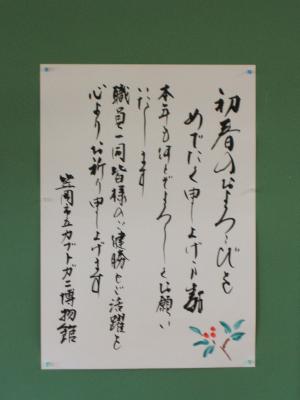 初春のおよろこびを
めでたく申し上げます
本年も何とぞよろしくお願い
いたします
職員一同皆様のご健勝とご活躍を
心よりお祈り申し上げます
笠岡市立カブトガニ博物館